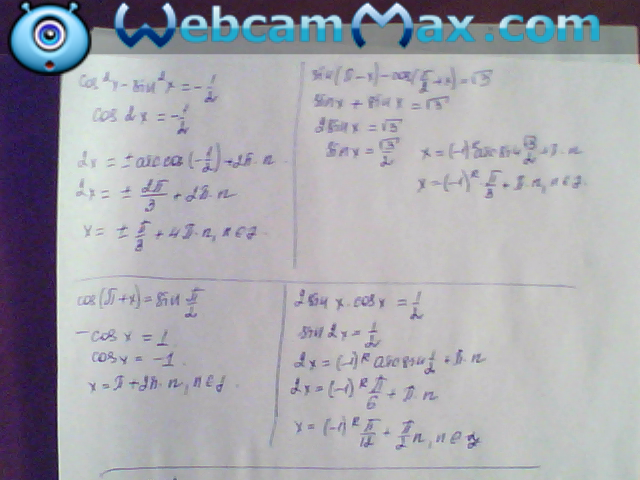 WebcamMax.com
cos²x - sin²x = -1/2
cos 2x = -1/2
2x = ± arccos(-1/2) + 2π·n
2x = ± 2π/3 + 2π·n
x = ± π/3 + 4π·n, n∈z
sin(π-x) - cos(π/2+x) = √3
sin x + sin x = √3
2 sin x = √3
sin x = √3/2
x = (-1)ᴷ arcsin √3/2 + π·n
x = (-1)ᴷ·π/3 + π·n, n∈z
cos(π+x) = sin π/2
-cos x = 1
cos x = -1
x = π + 2π·n, n∈z
2 sin x · cos x = 1/2
sin 2x = 1/2
2x = (-1)ᴷ arcsin 1/2 + π·n
2x = (-1)ᴷ π/6 + π·n
x = (-1)ᴷ π/12 + π/2 n, n∈z